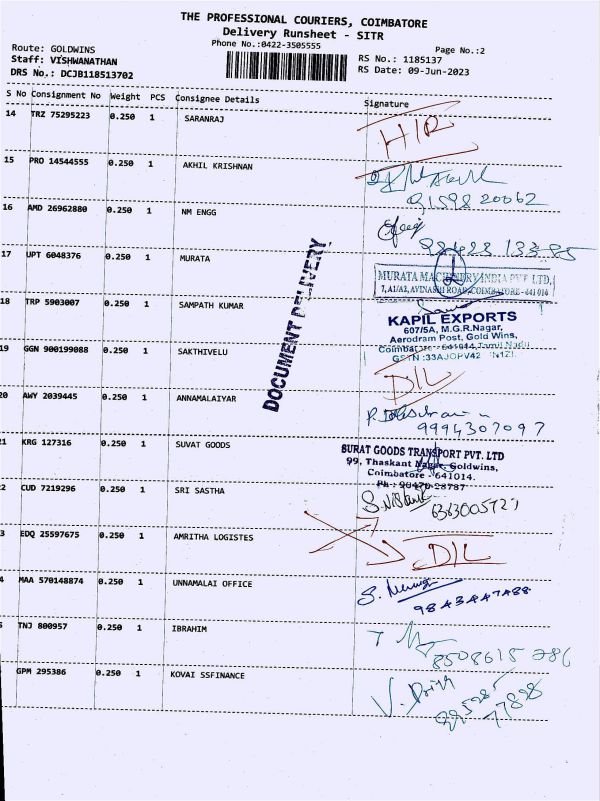 THE PROFESSIONAL COURIERS, COIMBATORE
Delivery Runsheet - SITR
Phone No.:0422-3505555
Page No.:2
Route: GOLDWINS
Staff: VISHWANATHAN
DRS No.: DCJB118513702
RS No.: 1185137
RS Date: 09-Jun-2023
S No Consignment No Weight PCS Consignee Details Signature
14 TRZ 75295223 0.250 1 SARANRAJ
15 PRO 14544555 0.250 1 AKHIL KRISHNAN
9159820062
16 AMD 26962880 0.250 1 NM ENGG
17 UPT 6048376 0.250 1 MURATA
MURATA MACHINERY INDIA PVT LTD,
7, A1/A2, AVINASHI ROAD, COIMBATORE - 641 014
DOCUMENT DELIVERY
18 TRP 5903007 0.250 1 SAMPATH KUMAR
KAPIL EXPORTS
607/5A, M.G.R.Nagar,
Aerodram Post, Gold Wins,
Coimbatore - 641014, Tamil Nadu
19 GGN 900199088 0.250 1 SAKTHIVELU
D/L
20 AWY 2039445 0.250 1 ANNAMALAIYAR
9994307097
21 KRG 127316 0.250 1 SUVAT GOODS
SURAT GOODS TRANSPORT PVT. LTD
99, Thaskant Nagar, Goldwins,
Coimbatore - 641014.
Ph : 90470-28787
2 CUD 7219296 0.250 1 SRI SASTHA
3 EDQ 25597675 0.250 1 AMRITHA LOGISTES
D/L
4 MAA 570148874 0.250 1 UNNAMALAI OFFICE
TNJ 800957 0.250 1 IBRAHIM
8508615286
GPM 295386 0.250 1 KOVAI SSFINANCE